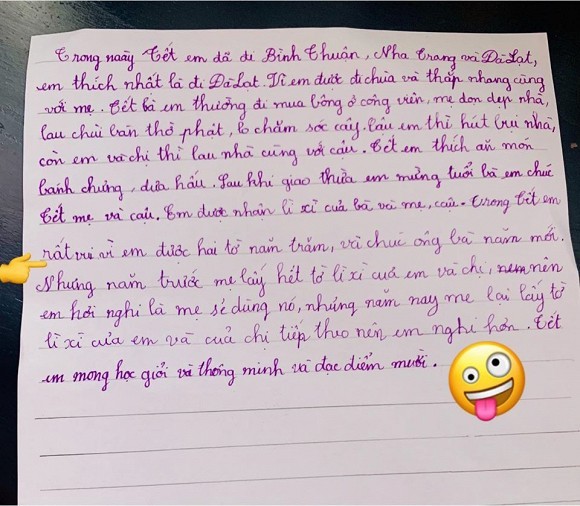 Trong ngày Tết em đã đi Bình Thuận, Nha Trang và Đà Lạt,
em thích nhất là đi Đà Lạt. Vì em được đi chùa và thắp nhang cùng
với mẹ. Tết bà em thường đi mua bông ở công viên, mẹ dọn dẹp nhà,
lau chùi bàn thờ phật, lo chăm sóc cây. Cậu em thì hút bụi nhà,
còn em và chị thì lau nhà cùng với cậu. Tết em thích ăn món
bánh chưng, dưa hấu. Sau khi giao thừa em mừng tuổi bà em chúc
Tết mẹ và cậu. Em được nhận lì xì của bà và mẹ, cậu. Trong Tết em
rất vui vì em được hai tờ năm trăm, và chúc ông bà năm mới.
Nhưng năm trước mẹ lấy hết tờ lì xì của em và chị, nem nên
em hơi nghi là mẹ sẽ dùng nó, nhưng năm nay mẹ lại lấy tờ
lì xì của em và của chị tiếp theo nên em nghi hơn. Tết
em mong học giỏi và thông minh và đạc điểm mười.